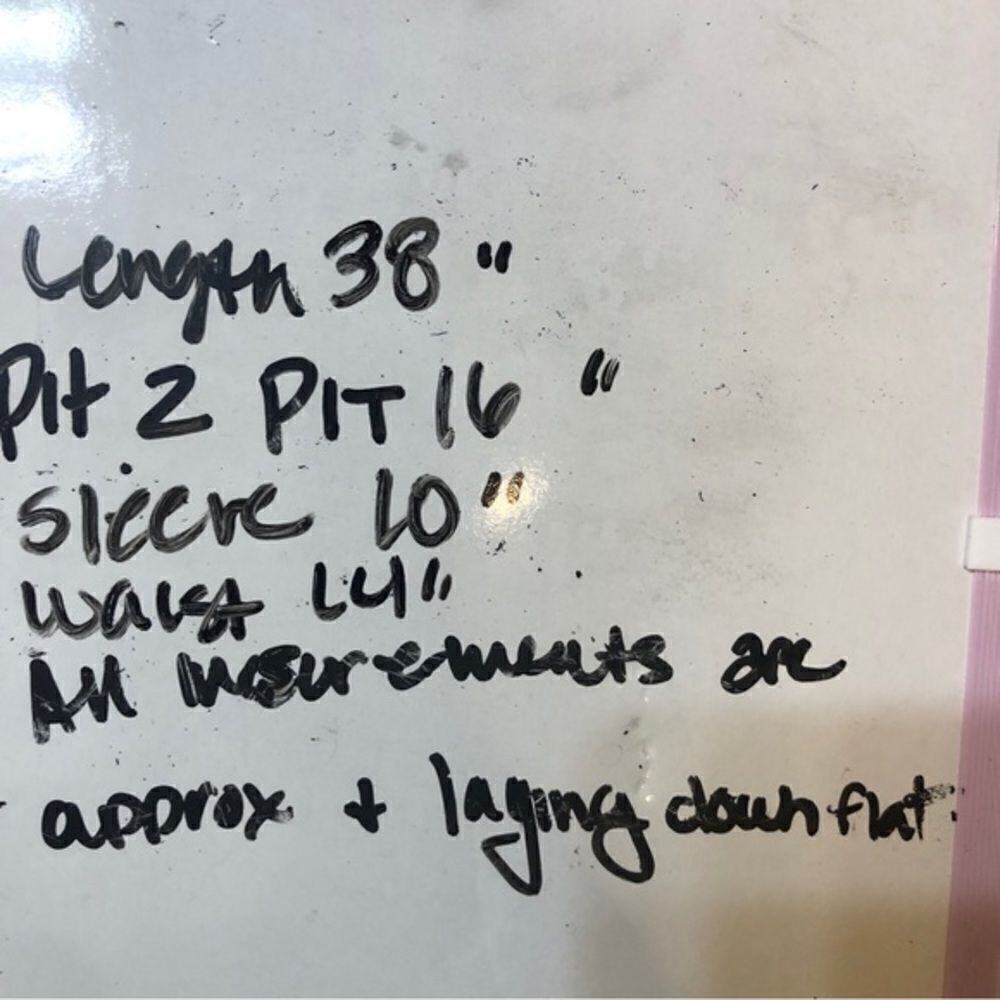 Length 38"
Pit 2 PIT 16"
Sleeve 10"
waist 14"
All mesurements are
approx + laying down flat.